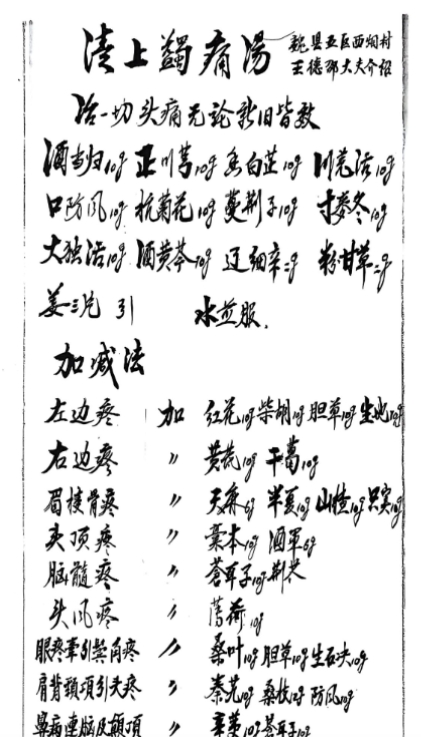 清上蠲痛汤
魏县五区西烟村
王德邵大夫介绍
治一切头痛无论新旧皆效
酒当归10g 正川芎10g 香白芷10g 川羌活10g
口防风10g 杭菊花10g 蔓荆子10g 寸麦冬10g
大独活10g 酒黄芩10g 辽细辛2g 粉甘草2g
姜三片 引 水煎服.
加减法
左边疼 加 红花10g 柴胡10g 胆草10g 生地10g
右边疼 〃 黄芪10g 干葛10g
眉棱骨疼 〃 天麻6g 半夏10g 山楂10g 只实10g
头顶疼 〃 藁本10g 酒军6g
脑髓疼 〃 苍耳子10g 荆芥
头风疼 〃 薄荷10g
眼疼牵引鬓角疼 〃 桑叶10g 胆草10g 生石决10g
肩背颈项引头疼 〃 秦艽10g 桑枝10g 防风10g
鼻病连脑及额顶 〃 苍耳子10g